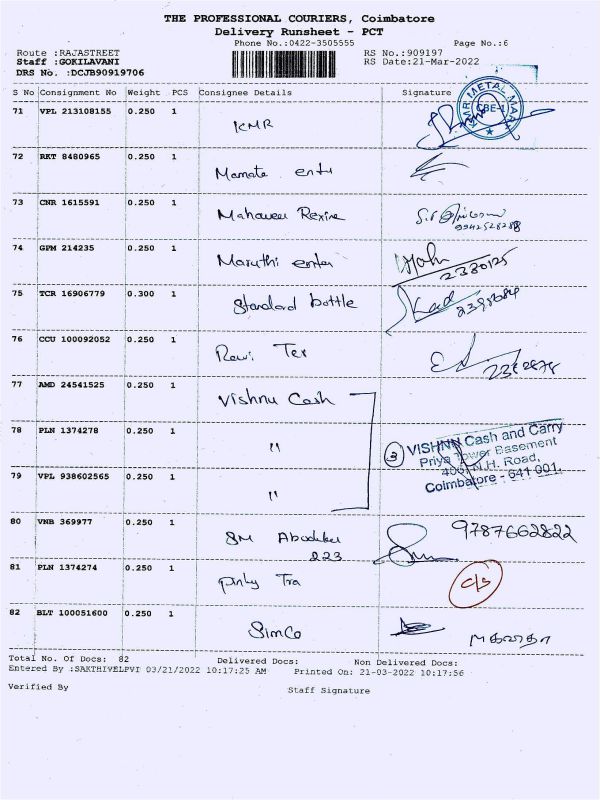 THE PROFESSIONAL COURIERS, Coimbatore
Delivery Runsheet - PCT
Phone No.:0422-3505555 Page No.:6
Route :RAJASTREET RS No.:909197
Staff :GOKILAVANI RS Date:21-Mar-2022
DRS No. :DCJB90919706
S No Consignment No Weight PCS Consignee Details Signature
71 VPL 213108155 0.250 1 KMR
KMR METAL MART CBE-1
72 RKT 8480965 0.250 1 Mamata ent
73 CNR 1615591 0.250 1 Mahaveer Rexine
9942528288
74 GPM 214235 0.250 1 Maruthi enter
2380125
75 TCR 16906779 0.300 1 Standard bottle
76 CCU 100092052 0.250 1 Ravi Tex
77 AMD 24541525 0.250 1 Vishnu Cash
78 PLN 1374278 0.250 1 "
3 VISHNU Cash and Carry
Priya Tower Basement
N.H. Road,
Coimbatore - 641 001.
79 VPL 938602565 0.250 1 "
80 VNB 369977 0.250 1 SM
223 9787662822
81 PLN 1374274 0.250 1 pinky Tra C/S
82 BLT 100051600 0.250 1 Simco
Total No. Of Docs: 82 Delivered Docs: Non Delivered Docs:
Entered By :SAKTHIVELPVI 03/21/2022 10:17:25 AM Printed On: 21-03-2022 10:17:56
Verified By Staff Signature